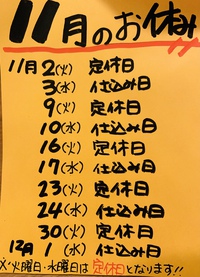 11月のお休み
11月2(火) 定休日
3(水) 仕込み日
9(火) 定休日
10(水) 仕込み日
16(火) 定休日
17(水) 仕込み日
23(火) 定休日
24(水) 仕込み日
30(火) 定休日
12月1(水) 仕込み日
※火曜日・水曜日は定休日となります!!